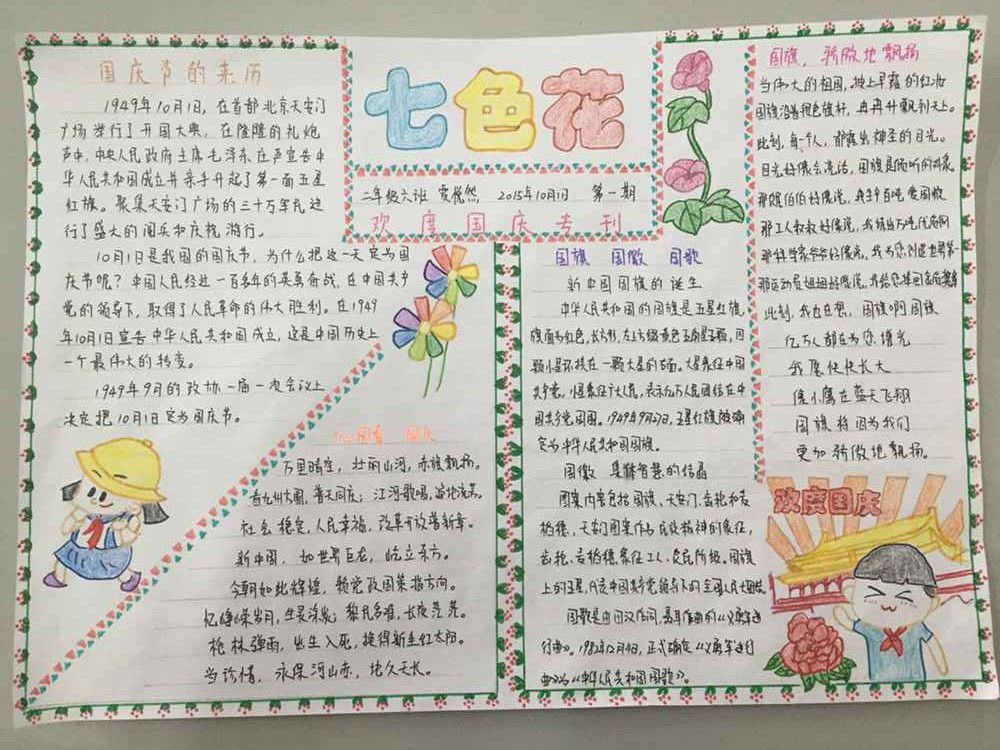 国庆节的来历
1949年10月1日，在首都北京天安门
广场举行了开国大典，在隆隆的礼炮
声中，中央人民政府主席毛泽东庄严宣告中
华人民共和国成立并亲手升起了第一面五星
红旗。聚集天安门广场的三十万军民进
行了盛大的阅兵和庆祝游行。
10月1日是我国的国庆节，为什么把这一天定为国
庆节呢？中国人民经过一百多年的英勇奋战，在中国共产
党的领导下，取得了人民革命的伟大胜利。在1949
年10月1日宣告中华人民共和国成立，这是中国历史上
一个最伟大的转变。
1949年9月的政协一届一次会议上
决定把10月1日定为国庆节。
七色花
二年级六班 然 2015年10月1日 第一期
欢度国庆专刊
国庆
万里晴空，壮丽山河，赤旗飘扬。
看九州大圆，普天同庆；江河歌唱，
社会稳定，人民幸福，改革开放谱新章。
新中国，如世界巨龙，屹立东方。
今朝如此辉煌，领党政国策指方向。
忆峥嵘岁月，生灵涂炭；黎民多难，长夜茫茫。
枪林弹雨，出生入死，换得新生红太阳。
当珍惜，永保河山赤，地久天长。
国旗 国徽 国歌
新中国国旗的诞生
中华人民共和国的国旗是五星红旗，
旗面为红色，长方形，左上方缀黄色五角星五颗，四
颗小星环拱在一颗大星的右面。大星象征中国
共产党，小星象征广大人民，表示亿万人民团结在中
国共产党周围。1949年9月27日，五星红旗被确
定为中华人民共和国国旗。
国徽 集体智慧的结晶
图案内容包括国旗、天安门、齿轮和麦
稻穗，天安门图案作为民族精神的象征，
齿轮、麦稻穗象征工人、农民阶级。国旗
上的五星，代表中国共产党领导下的全国人民大团结。
国歌是由田汉作词，聂耳作曲的《义勇军进
行曲》。1982年12月4日，正式确定《义勇军进行
曲》为《中华人民共和国国歌》。
国旗，骄傲地飘扬
当伟大的祖国，披上早霞的红妆
国旗沿着银色旗杆，冉冉升飘到天上。
此刻，每一个人，都露出神圣的目光。
目光好像会说话，国旗是倾听的对象
那
那工人叔叔好像说，我
那科学家爷爷好像说，我
那运动员姐姐好像说，我
此刻，我也在想，国旗啊国旗
亿万人都在为您增光
我愿快快长大
像小鹰在蓝天飞翔
国旗将因为我们
更加骄傲地飘扬。
欢度国庆